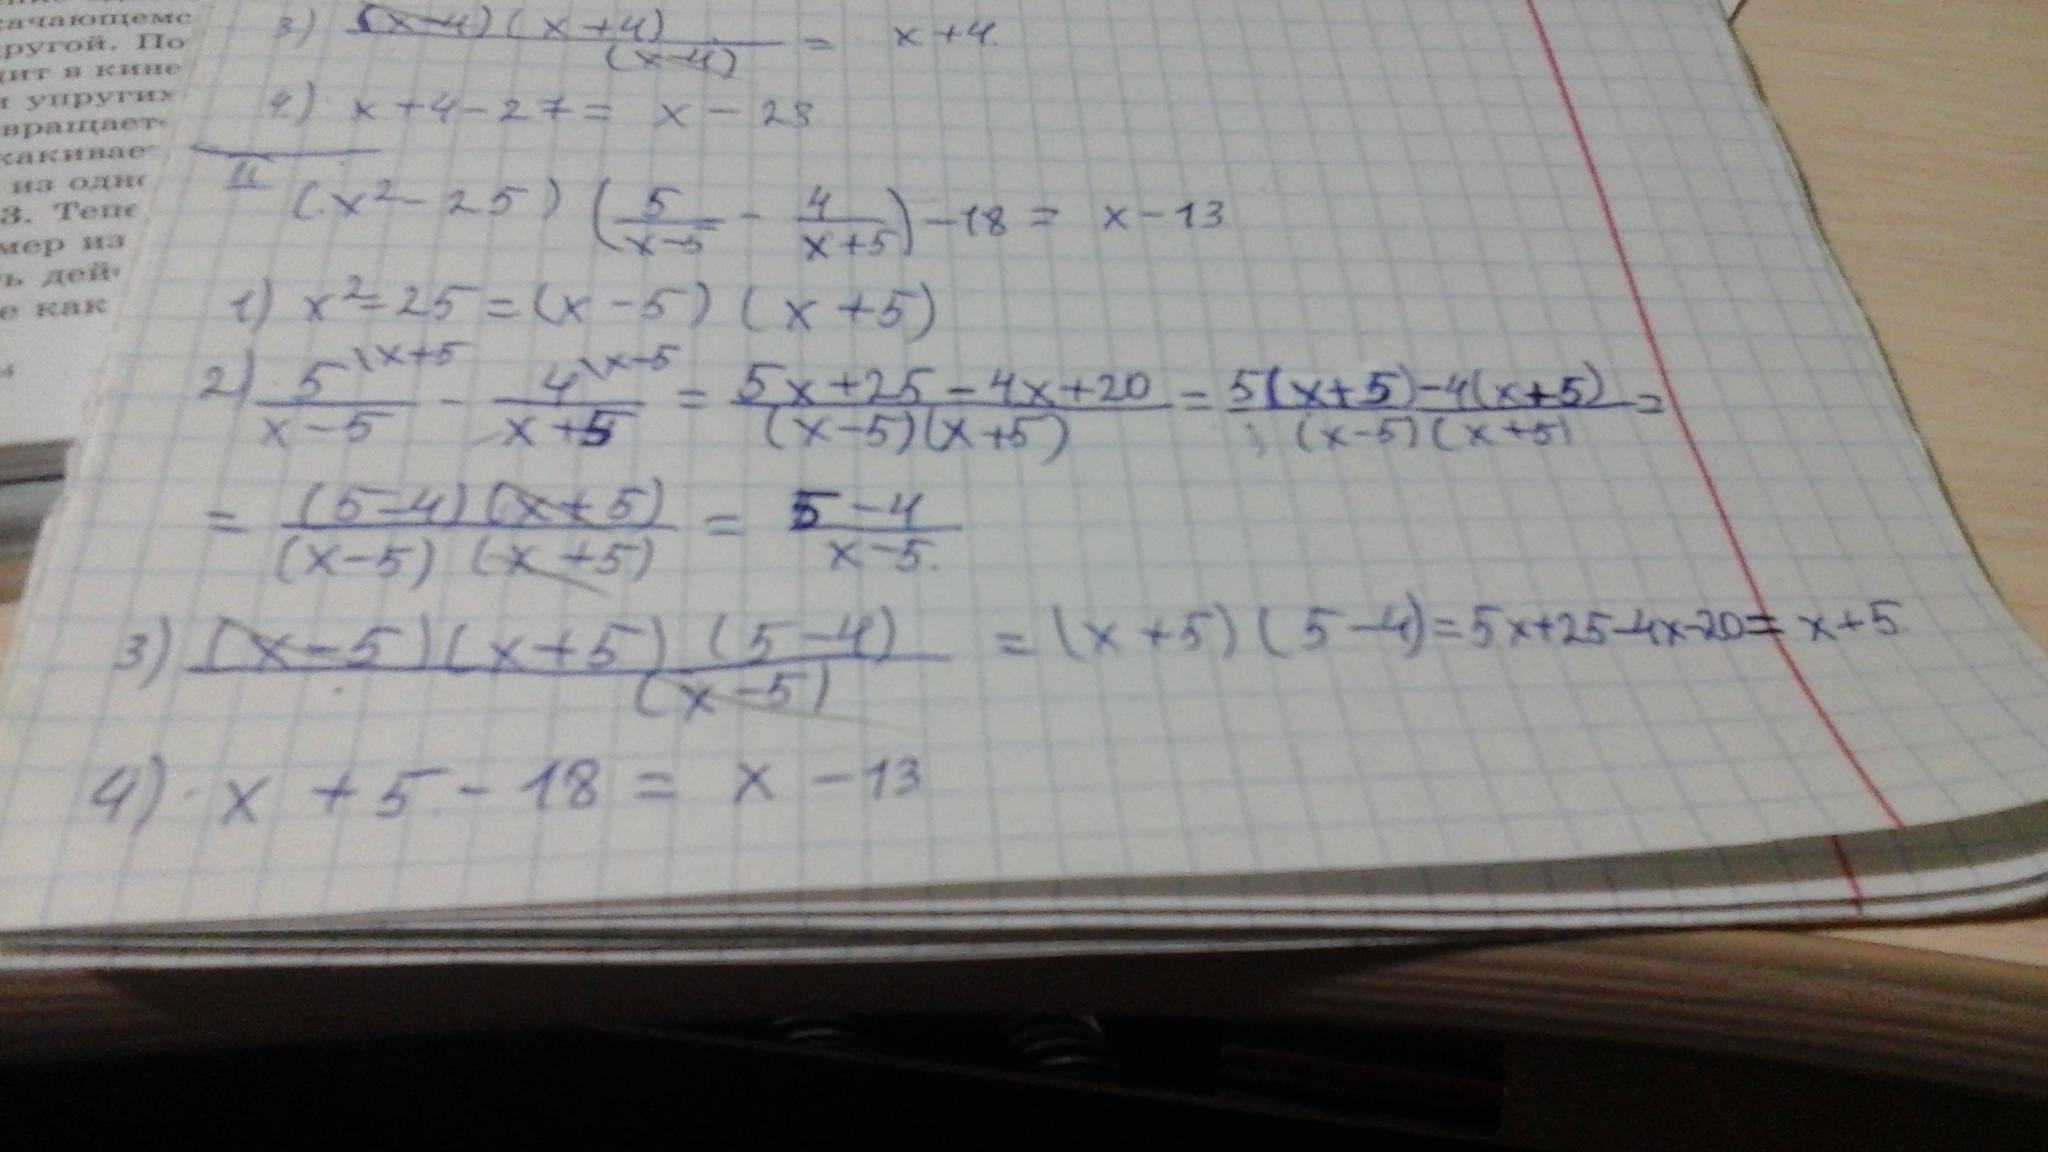 качающемс
ругой. По
дит в кине
и упругих
вращает
какивае
из одно
3. Тепе
мер из
ь дей
е как
3) (x-4)(x+4)/(x-4) = x+4.
4) x+4-27 = x-23
II (x²-25)(5/(x-5) - 4/(x+5)) -18 = x-13
1) x²-25 = (x-5)(x+5)
2) 5\x+5/(x-5) - 4\x-5/(x+5) = (5x+25-4x+20)/((x-5)(x+5)) = (5(x+5)-4(x+5))/((x-5)(x+5)) =
= (5-4)(x+5)/((x-5)(x+5)) = (5-4)/(x-5).
3) (x-5)(x+5)(5-4)/(x-5) = (x+5)(5-4) = 5x+25-4x-20 = x+5.
4) x+5-18 = x-13